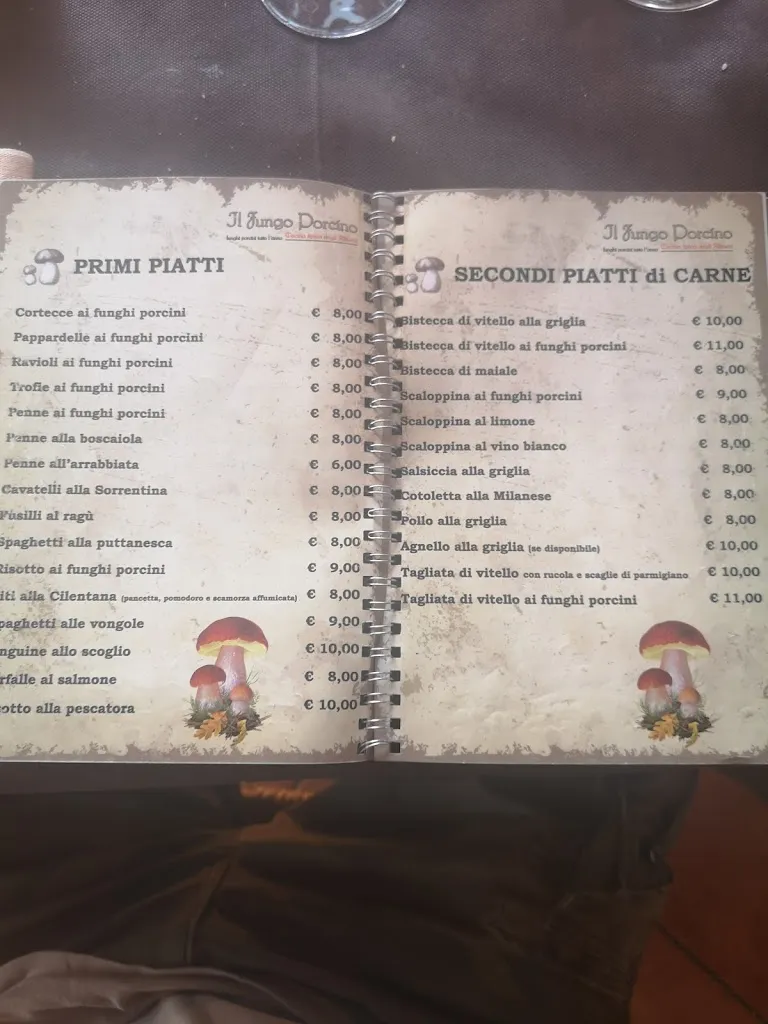 Il Fungo Porcino
funghi porcini tutto l'anno
PRIMI PIATTI
Cortecce ai funghi porcini € 8,00
Pappardelle ai funghi porcini € 8,00
Ravioli ai funghi porcini € 8,00
Trofie ai funghi porcini € 8,00
Penne ai funghi porcini € 8,00
Penne alla boscaiola € 8,00
Penne all'arrabbiata € 6,00
Cavatelli alla Sorrentina € 8,00
Fusilli al ragù € 8,00
Spaghetti alla puttanesca € 8,00
Risotto ai funghi porcini € 9,00
iti alla Cilentana (pancetta, pomodoro e scamorza affumicata) € 8,00
paghetti alle vongole € 9,00
nguine allo scoglio € 10,00
rfalle al salmone € 8,00
otto alla pescatora € 10,00
Il Fungo Porcino
funghi porcini tutto l'anno
SECONDI PIATTI di CARNE
Bistecca di vitello alla griglia € 10,00
Bistecca di vitello ai funghi porcini € 11,00
Bistecca di maiale € 8,00
Scaloppina ai funghi porcini € 9,00
Scaloppina al limone € 8,00
Scaloppina al vino bianco € 8,00
Salsiccia alla griglia € 8,00
Cotoletta alla Milanese € 8,00
Pollo alla griglia € 8,00
Agnello alla griglia (se disponibile) € 10,00
Tagliata di vitello con rucola e scaglie di parmigiano € 10,00
Tagliata di vitello ai funghi porcini € 11,00